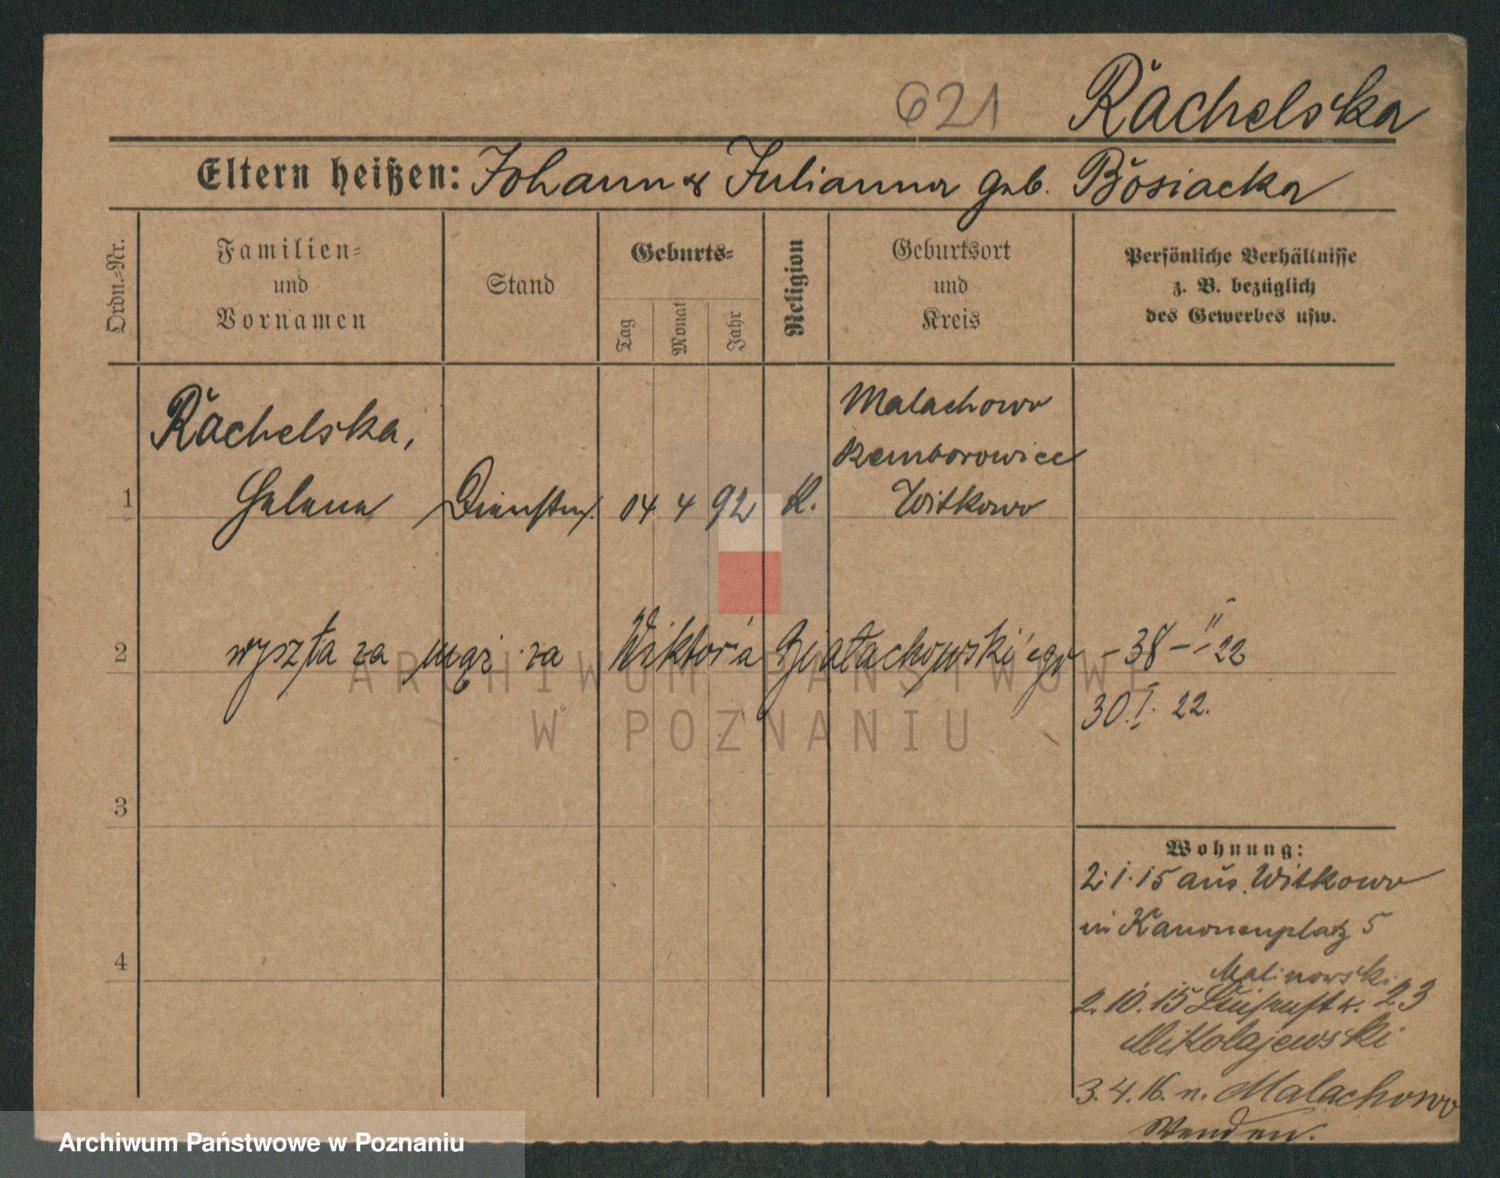 621 Rachelska
Eltern heißen: Johann & Julianna geb. Bosiacka
Ordn.-Nr.
Familien-
und
Vornamen
Stand
Geburts-
Tag
Monat
Jahr
Religion
Geburtsort
und
Kreis
Persönliche Verhältnisse
z. B. bezüglich
des Gewerbes usw.
Rachelska,
Malachowo
1 Helena Dienstm. 04 4 92 K.
Witkowo
2 wyszła za mąż za Wiktor'a - 38 - II 22
30. I. 22.
3
Wohnung:
2.1.15 aus Witkowo
in Kanonenplatz 5
4
Malinowski
2.10.15 23
Mikolajewski
3.4.16. n. Malachowo
Wenden.
ARCHIWUM PAŃSTWOWE
W POZNANIU
Archiwum Państwowe w Poznaniu